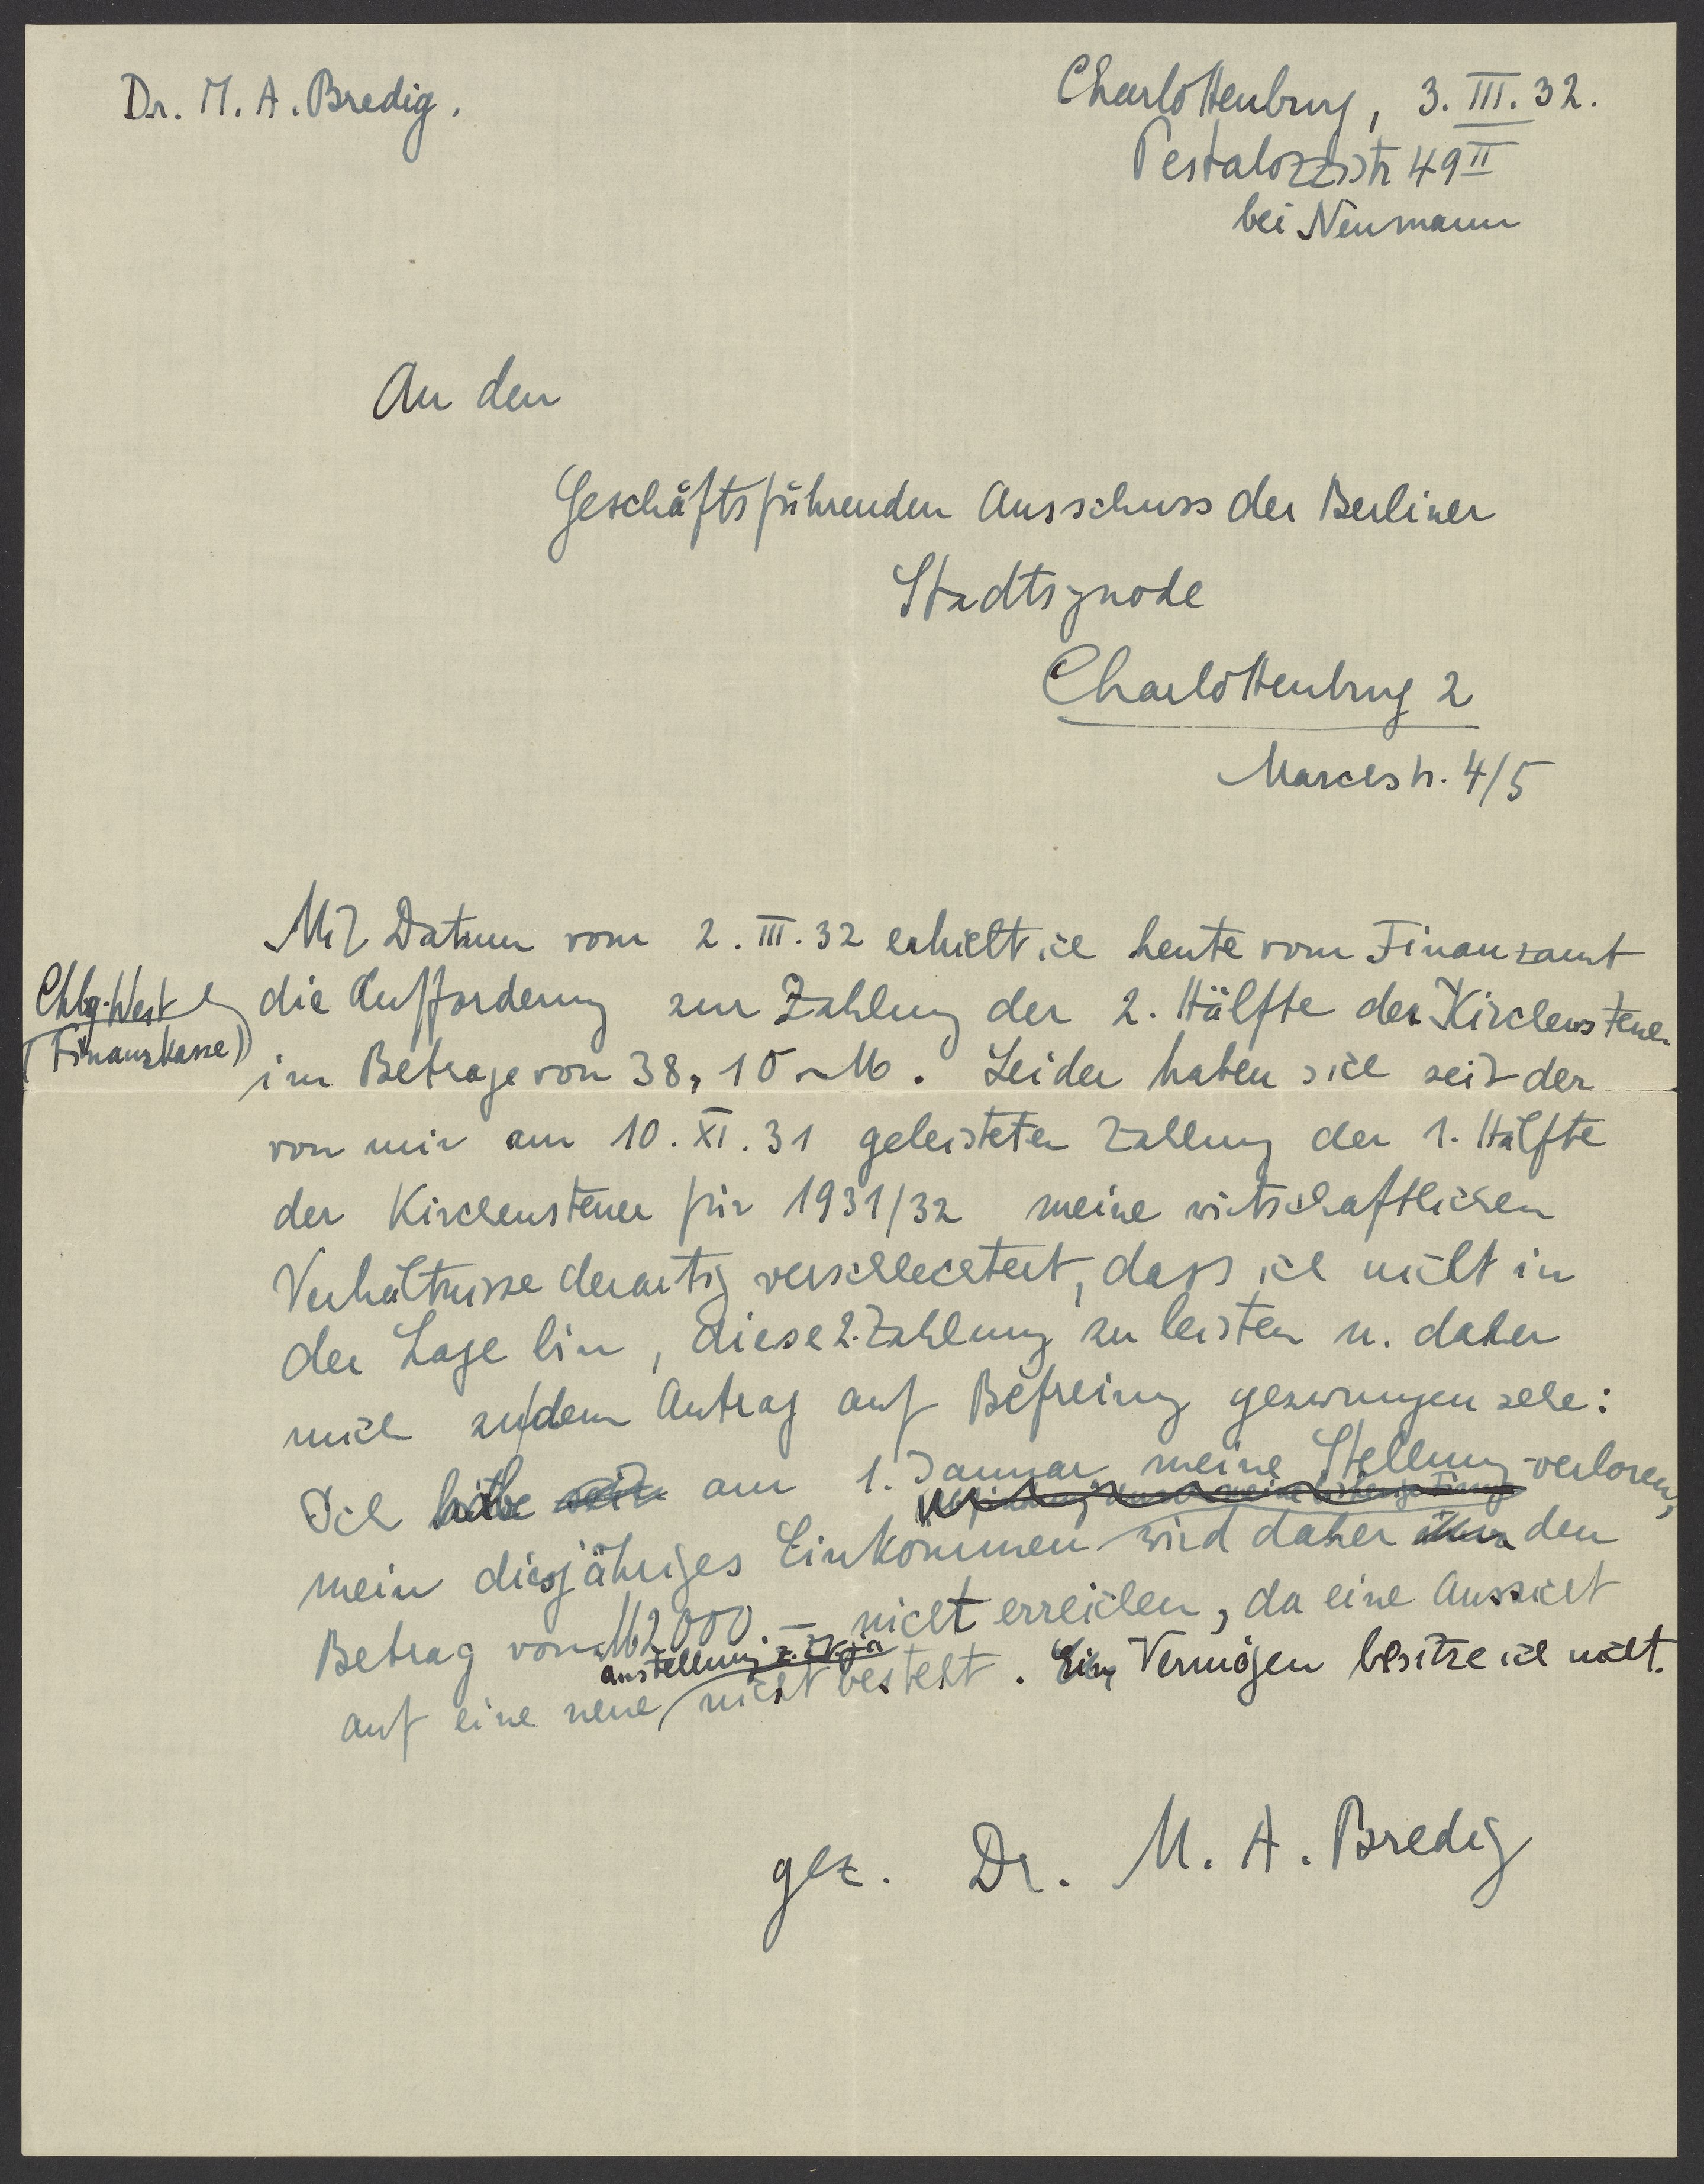 Dr. M. A. Bredig.
Charlottenburg, 3. III. 32.
Pestalozzistr 49 II
bei Neumann
An den
Geschäftsführenden Ausschuss der Berliner
Stadtsynode
Charlottenburg 2
Marchstr. 4/5
Mit Datum vom 2. III. 32 erhielt ich heute vom Finanzamt
Chbg-West
(Finanzkasse)
die Aufforderung zur Zahlung der 2. Hälfte der Kirchensteuer
im Betrage von 38,10 M. Leider haben sich seit der
von mir am 10. XI. 31 geleisteten Zahlung der 1. Hälfte
der Kirchensteuer für 1931/32 meine wirtschaftlichen
Verhältnisse derartig verschlechtert, dass ich nicht in
der Lage bin, diese 2. Zahlung zu leisten u. daher
mich zu dem Antrag auf Befreiung gezwungen sehe:
Ich habe am 1. Januar meine Stellung verloren,
mein diesjähriges Einkommen wird daher den
Betrag von M 2000.- nicht erreichen, da eine Aussicht
anstellung z. Zt. ja
auf eine neue nicht besteht. Ein Vermögen besitze ich nicht.
gez. Dr. M. A. Bredig